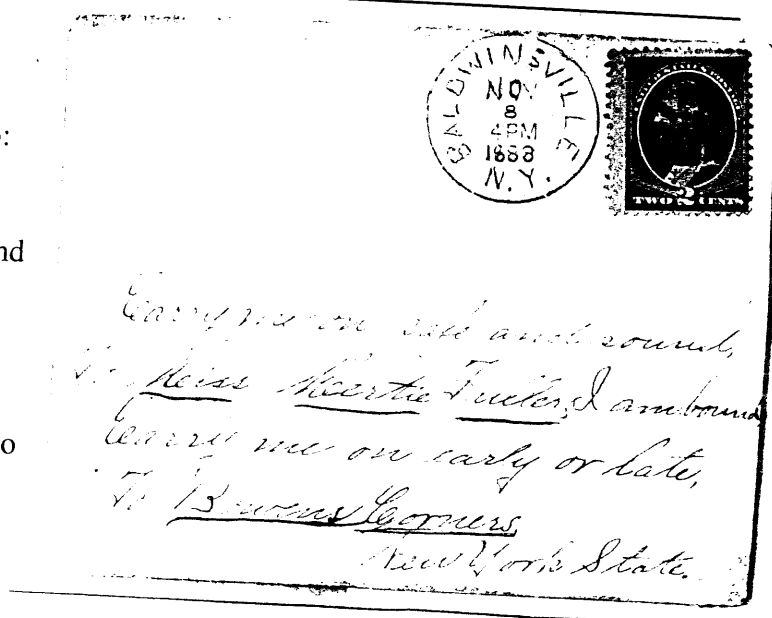 BALDWINSVILLE
NOV
8
4PM
1883
N.Y.
UNITED STATES POSTAGE
TWO 2 CENTS
:
nd
o
Carry me on safe and sound,
To Miss Mertie Tucker, I am bound
Carry me on early or late,
To Bowens Corners,
New York State.